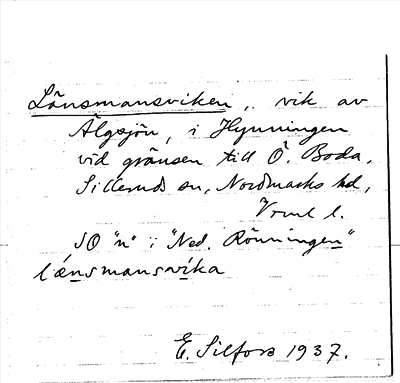 Länsmansviken, vik av
Älgsjön, i Hynningen
vid gränsen till Ö. Boda,
Sillerud sn, Nordmarks hd,
Vrml l.
SO "n" i "Ned. Rönningen"
lä́nsmansvika
E. Silfors 1937.